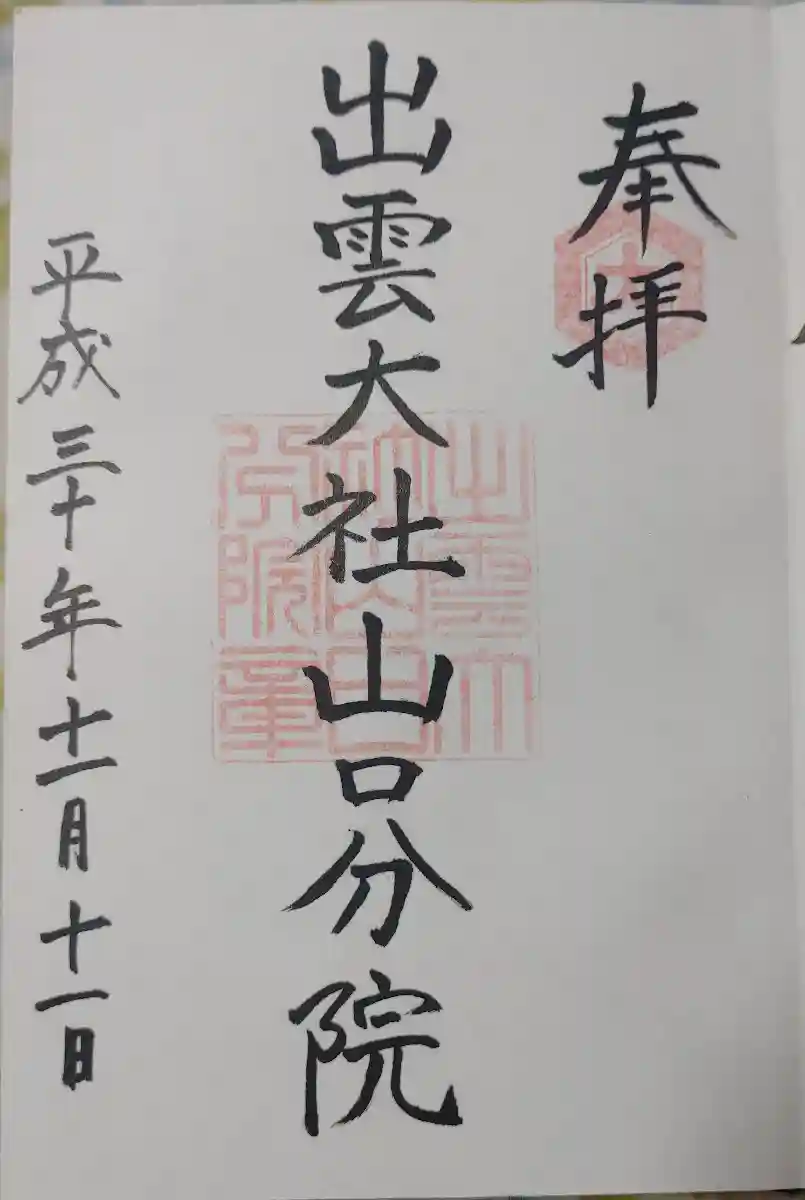 奉拝
出雲大社山口分院
平成三十年十一月十一日
出雲大
社山口
分院章